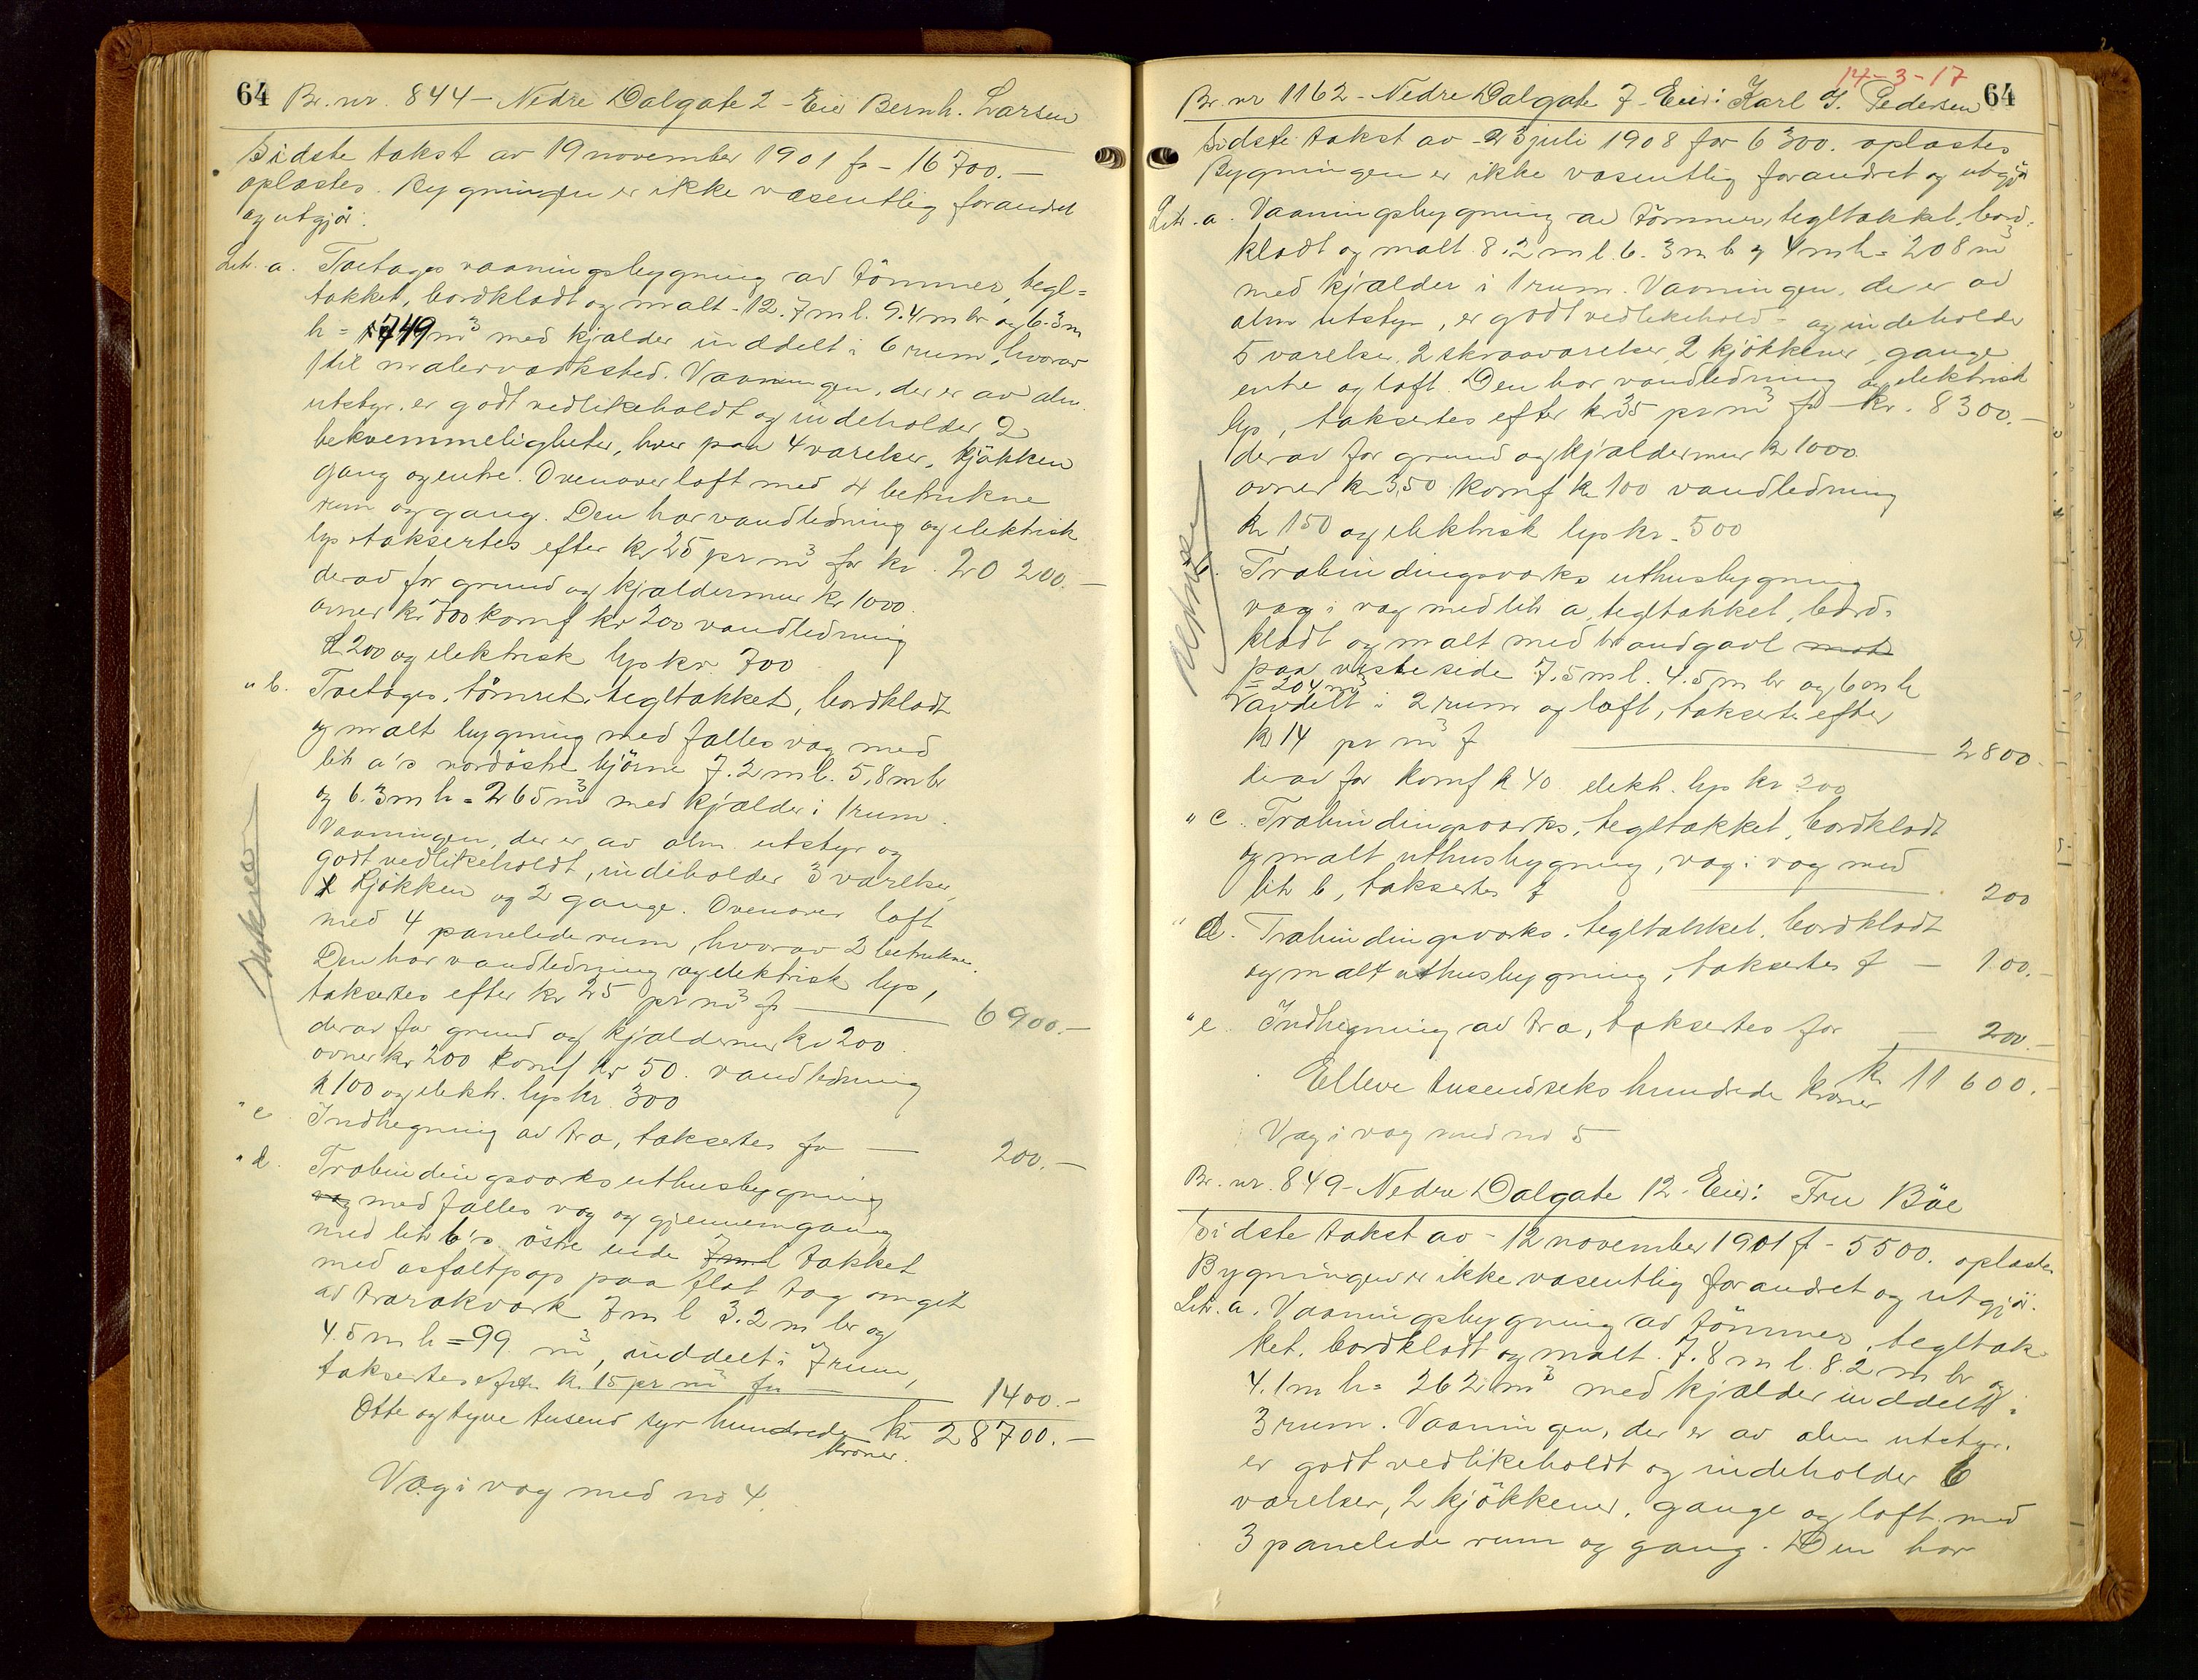 64 Br. nr. 844 - Nedre Dalgate 2 - Eier Bernh. Larsen
Sidste takst av 19 november 1901 fr - 16 700.-
oplæstes. Bygningen er ikke væsentlig forandret
og utgjør:
Litr. a. Toetages vaaningsbygning av tömmer, tegl=
tækket, bordklædt og malt - 12.7 m l. 9.4 m br og 6.3 m
h = 749 m³ med kjælder inddelt i 6 rum, hvorav
1 til malerværksted. Vaaningen, der er av alm.
utstyr, er godt vedlikeholdt og indeholder 2
bekvemmeligheter, hver paa 4 værelser, kjökken
gang og entre. Ovenover loft med 4 betrukne
rum og gang. Den har vandledning og elektrisk
lys, taksertes efter kr 25 pr m³ for kr. 20 200.-
derav for grund og kjældermur kr 1000.
ovner kr 700 komf kr 200 vandledning
k 200 og elektrisk lys kr 700
" b. Toetages, tömret, tegltækket, bordklædt
og malt bygning med fælles væg med
litr a's nordöstre hjörne 7.2 m l. 5,8 m br
og 6.3 m h = 265 m³ med kjælder i 1 rum.
Vaaningen, der er av alm. utstyr og
godt vedlikeholdt, indeholder 3 værelser,
1 kjökken og 2 gange. Ovenover loft
med 4 panelede rum, hvorav 2 betrukne.
Den har vandledning og elektrisk lys,
taksertes efter kr 25 pr m³ fr 6 900.-
derav for grund og kjældermur kr 200
ovner kr 200 komf kr 50. vandledning
k 100 og elektr. lys kr. 300
" c Indhegning av træ, taksertes for - 200.-
" d. Træbindingsværks uthusbygning
væg med fælles væg og gjennemgang
med litr b's östre ende 7 m l tækket
med asfaltpap paa flat tag omgit
av trærækværk 7 m l 3.2 m br og
4.5 m h = 99 m³, inddelt i 7 rum,
taksertes efter kr. 15 pr m³ for 1400.-
Otte og tyve tusend syv hundrede kr 28700.-
kroner.
Væg i væg med no 4.
14-3-17
Br. nr 1162 - Nedre Dalgate 7 - Eier: Karl J. Pedersen 64
Sidste takst av 23 juli 1908 for 6 300. oplæstes
Bygningen er ikke væsentlig forandret og utgjör
Litr. a. Vaaningsbygning av tömmer, tegltækket, bord-
klædt og malt 8.2 m l. 6.3 m b og 4 m h = 208 m³
med kjælder i 1 rum. Vaaningen, der er av
alm utstyr, er godt vedlikehold- og indeholder
5 værelser, 2 skraaværelser, 2 kjökkener, gange
entre og loft. Den har vandledning og elektrisk
lys, taksertes efter kr 35 pr m³ fr kr. 8300.-
derav for grund og kjældermur kr 1000.
ovner kr 350 komf kr 100 vandledning
kr 150 og elektrisk lys kr. 500
Træbindingsværks uthusbygning
væg i væg med litr a, tegltækket, bord-
klædt og malt med brandgavl mot
paa vestre side 7.5 m l. 4.5 m br og 6 m h
= 204 m³
inddelt i 2 rum og loft, taksertes efter
kr 14 pr m³ f 2800.
derav for komf k 40 elektr. lys kr. 200
" c. Træbindingsværks, tegltækket, bordklædt
og malt uthusbygning, væg i væg med
litr b, taksertes f 200
" d. Træbindingsværks, tegltækket, bordklædt
og malt uthusbygning, taksertes f - 100.-
" e. Indhegning av træ, taksertes for - 200.-
Elleve tusend seks hundrede kroner kr 11 600.-
Væg i væg med no 5
Br. nr. 849 - Nedre Dalgate 12 - Eier: Fru Böe
Sidste takst av - 12 november 1901 f - 5500. oplæstes
Bygningen er ikke væsentlig forandret og utgjör.
Litr. a. Vaaningsbygning av tömmer, tegltæk-
ket, bordklædt og malt. 7.8 m l. 8.2 m br og
4.1 m h = 262 m³ med kjælder inddelt i
3 rum. Vaaningen, der er av alm utstyr,
er godt vedlikeholdt og indeholder 6
værelser, 2 kjökkener, gange og loft med
3 panelede rum og gang. Den har